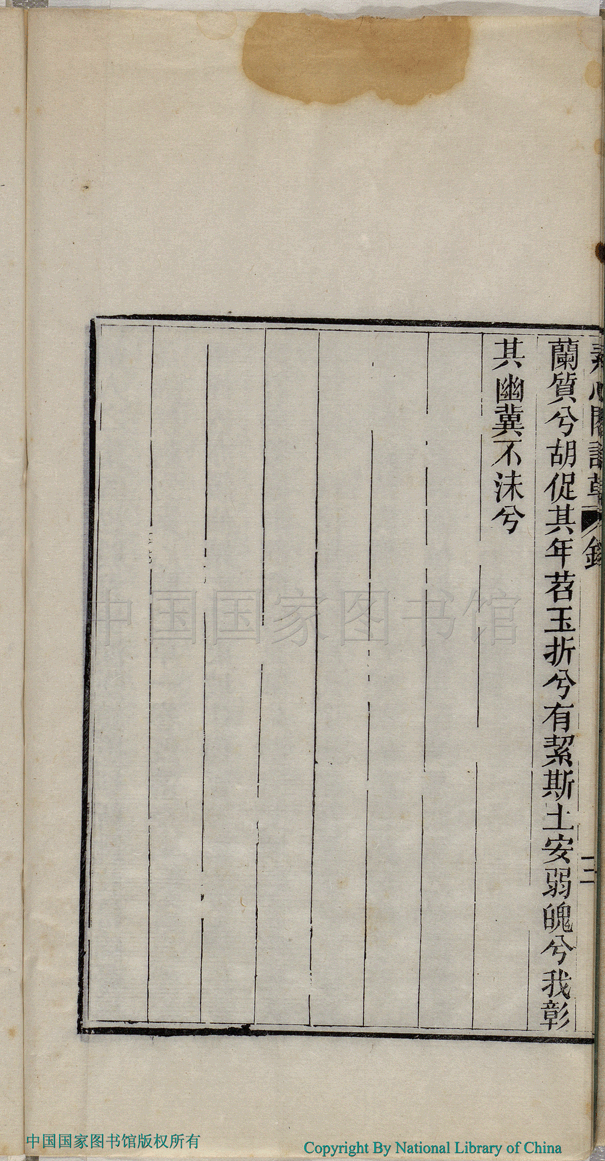 蘭質兮胡促其年苕玉折兮有絜斯土安弱魄兮我彰
其幽冀不沬兮
三
中国国家图书馆
中国国家图书馆版权所有
Copyright By National Library of China